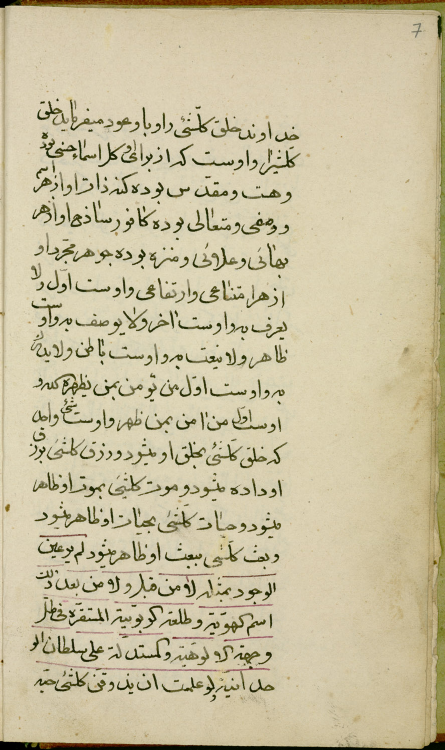 7
خداوند خلق کلشئ را و باو عود میفرماید خلق
کلشئ را و اوست که از برای او کل اسماء حسنی بوده
و هست و مقدس بوده کنه ذات او از هر اسم
و وصفی و متعالی بوده کافور ساذج او از هر
بهائی و علائی و منزه بوده جوهر مجرد او
از هر امتناعی و ارتفاعی و اوست اول و لا
یعرف به و اوست اخر و لا یوصف به و اوست
ظاهر و لا ینعت به و اوست باطن و لا یدرک
به و اوست اول من یؤمن بمن یظهره الله و
اوست اول من امن بمن ظهر و اوست شئ واحد
که خلق کلشئ بخلق او میشود و رزق کلشئ برزق
او داده میشود و موت کلشئ بموت او ظاهر
میشود و حیات کلشئ بحیات او ظاهر میشود
و بعث کلشئ ببعث او ظاهر میشود لم یر عین
الوجود بمثله لا من قبل و لا من بعد ذلک
اسم الهویة و طلعة الربوبیة المستقرة فی ظل
وجهة الالوهیة و المستدلة علی سلطان الو
حدانیة و لو علمت ان یذوقن کلشئ حبه